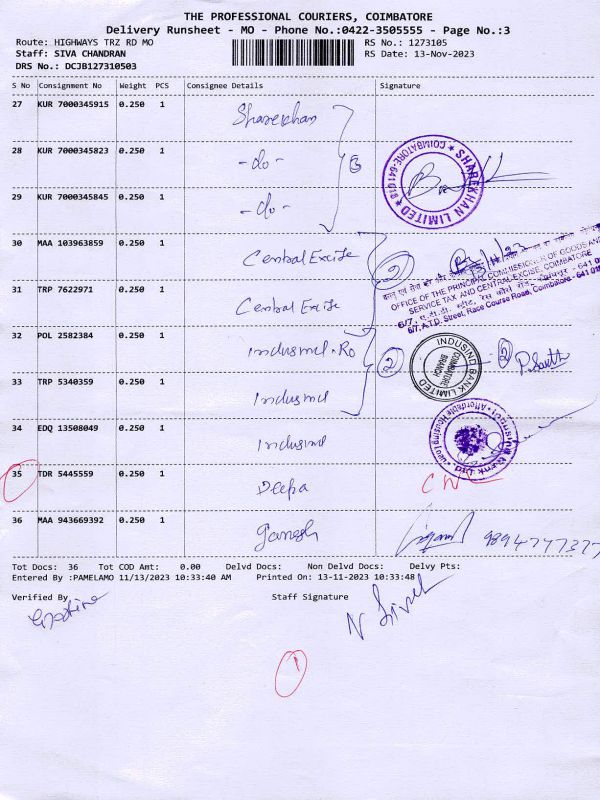 THE PROFESSIONAL COURIERS, COIMBATORE
Delivery Runsheet - MO - Phone No.:0422-3505555 - Page No.:3
Route: HIGHWAYS TRZ RD MO
RS No.: 1273105
Staff: SIVA CHANDRAN
RS Date: 13-Nov-2023
DRS No.: DCJB127310503
S No Consignment No Weight PCS Consignee Details Signature
27 KUR 7000345915 0.250 1 Sharekhan
28 KUR 7000345823 0.250 1 -do-
29 KUR 7000345845 0.250 1 -do-
SHAREKHAN LIMITED
COIMBATORE-641018
30 MAA 103963859 0.250 1 Central Excise 2
13/11/23
OFFICE OF THE PRINCIPAL COMMISSIONER OF GOODS AND
SERVICE TAX AND CENTRAL EXCISE, COIMBATORE
6/7, A.T.D. Street, Race Course Road, Coimbatore - 641 018
31 TRP 7622971 0.250 1 Central Excise
32 POL 2582384 0.250 1 Indusind. Ro 2
INDUSIND BANK LIMITED
COIMBATORE
BRANCH
2
33 TRP 5340359 0.250 1 Indusind
34 EDQ 13508049 0.250 1 Indusind
35 TDR 5445559 0.250 1 Deepa
36 MAA 943669392 0.250 1 Ganesh
Tot Docs: 36 Tot COD Amt: 0.00 Delvd Docs: Non Delvd Docs: Delvy Pts:
Entered By :PAMELAMO 11/13/2023 10:33:40 AM Printed On: 13-11-2023 10:33:48
Verified By
Staff Signature
1